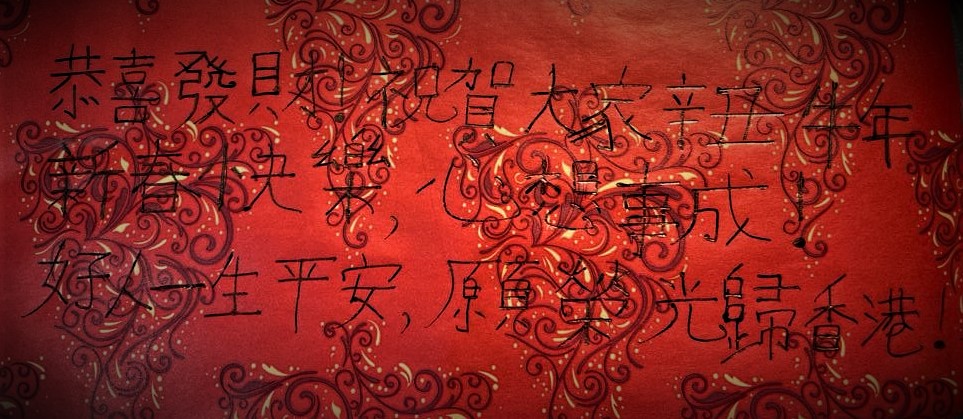 恭喜發財!祝賀大家辛丑牛年
新春快樂,心想事成!
好人一生平安,願榮光歸香港!